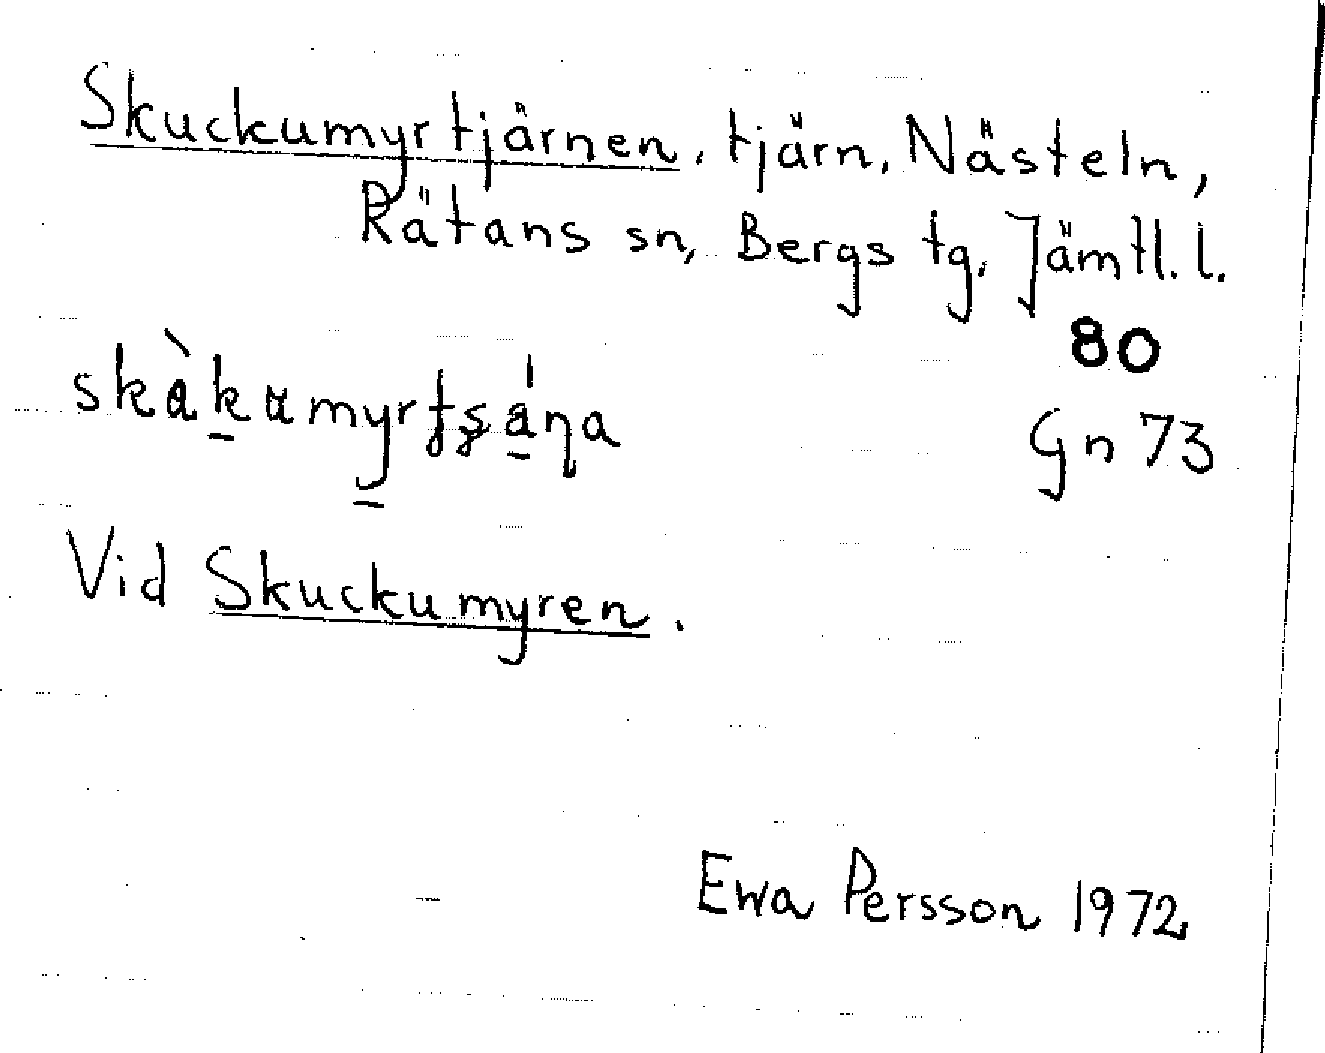 Skuckumyrtjärnen, tjärn, Nästeln,
Rätans sn, Bergs tg, Jämtl. l.
80
Gn 73
Vid Skuckumyren.
Ewa Persson 1972